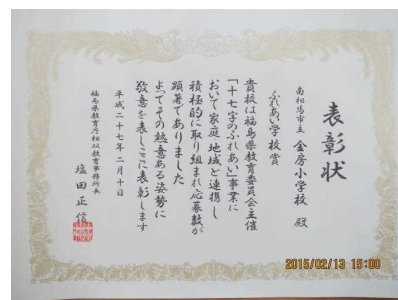 表彰状
南相馬市立 金房小学校 殿
ふれあい学校賞
貴校は福島県教育委員会主催
「十七字のふれあい」事業に
おいて家庭地域と連携し
積極的に取り組まれ応募数が
顕著でありました
よってその熱意ある姿勢に
敬意を表しここに表彰します
平成二十七年二月十日
福島県教育庁相双教育事務所長
塩田正信
2015/02/13 15:00